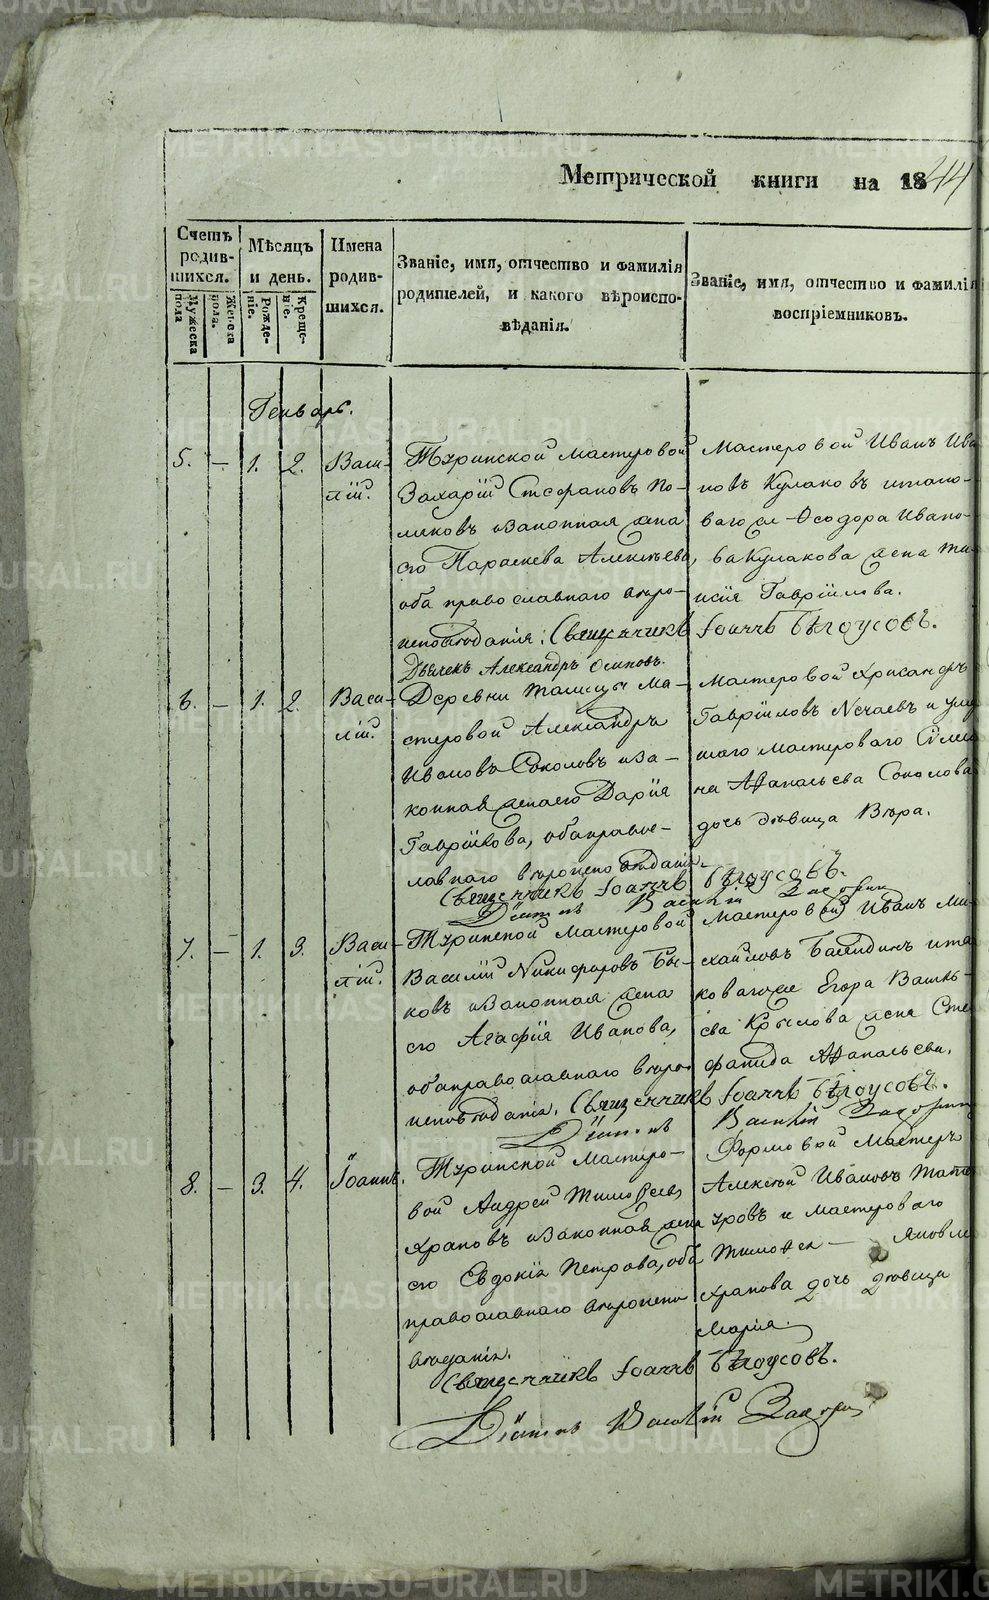 Метрической книги на 1844
Счетъ родив-шихся.
Мужеска пола
Женска пола.
Мѣсяцъ и день.
Рожде-ніе.
Креще-ніе.
Имена родив-шихся.
Званіе, имя, отчество и фамилія
родителей, и какого вѣроиспо-
вѣданія.
Званіе, имя, отчество и фамилія
воспріемниковъ.
Генварь.
5. — 1. 2. Васи-
лій.
Туринской мастеровой
Захарій Стефановъ По-
ляковъ и законная жена
его Параскева Алексѣева,
оба православнаго вѣро-
исповѣданія.
Мастеровой Иванъ Ива
новъ Кулаковъ и тако-
ваго же Ѳеодора Ивано-
ва Кулакова жена Та-
исія Гаврійлова.
Священникъ Іоаннъ Бѣлоусовъ.
Дьячекъ Александръ Осиповъ.
6. — 1. 2. Васи-
лій.
Деревни Талицы Ма-
стеровой Александръ
Ивановъ Соколовъ и за-
конная жена его Дарія
Гаврійлова, оба право-
славнаго вѣроисповѣданія.
Мастеровой Хрисанфъ
Гавріиловъ Нечаевъ и
шаго мастероваго Симео
на Афанасьева Соколова
дочь дѣвица Вѣра.
Священникъ Іоаннъ Бѣлоусовъ.
Діаконъ Василій
7. — 1. 3. Васи-
лій.
Туринской Мастеровой
Василій Никифоровъ Бы-
ковъ и законная жена
его Агафія Иванова,
оба православнаго вѣро-
исповѣданія.
Мастеровой Иванъ Ми-
хайловъ и та
коваго же Егора Василь-
ева Крылова жена Сте
фанида Афанасьева.
Священникъ Іоаннъ Бѣлоусовъ.
Діаконъ Василій
8. — 3. 4. Іоаннъ.
Туринской Мастеро-
вой Андрей Тимофеевъ
Храповъ и законная жена
его Евдокія Петрова, оба
православнаго вѣроиспо
вѣданія.
Формовой Мастеръ
Алексѣй Ивановъ Тата
уровъ и мастероваго
Тимофея — Яковле
Храпова дочь дѣвица
Марія.
Священникъ Іоаннъ Бѣлоусовъ.
Діаконъ Василій
METRIKI.GASO-URAL.RU